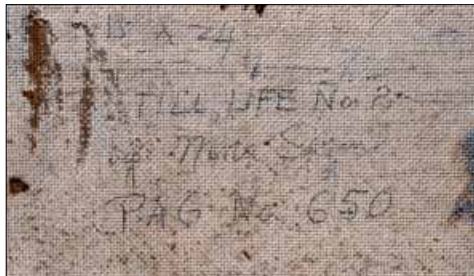 15 X 24
STILL LIFE No 2
by
PAG No 650